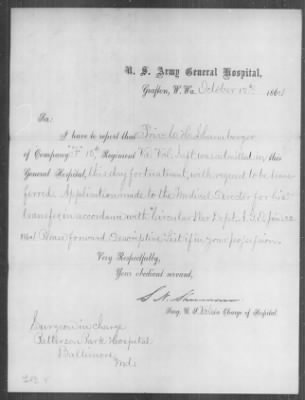 U. S. Army General Hospital,
Grafton, W. Va. October 10th 1864
Sir:
I have to report that Priv. C. H. Shunsberger
of Company "F" 15th Regiment Va. Vol. Inft. was admitted in this
General Hospital, this day for treatment, with request to be trans
ferred. Application made to the Medical Director for his
transfer in accordance with Circular War Dept. A. G. O. Jan. 22
1864. Please forward Descriptive List if in your possession.
Very Respectfully,
Your obedient servant,
S. N.
Surg. U. S. Vols in Charge of Hospital.
Surgeon in charge
Patterson Park Hospital
Baltimore
Md.